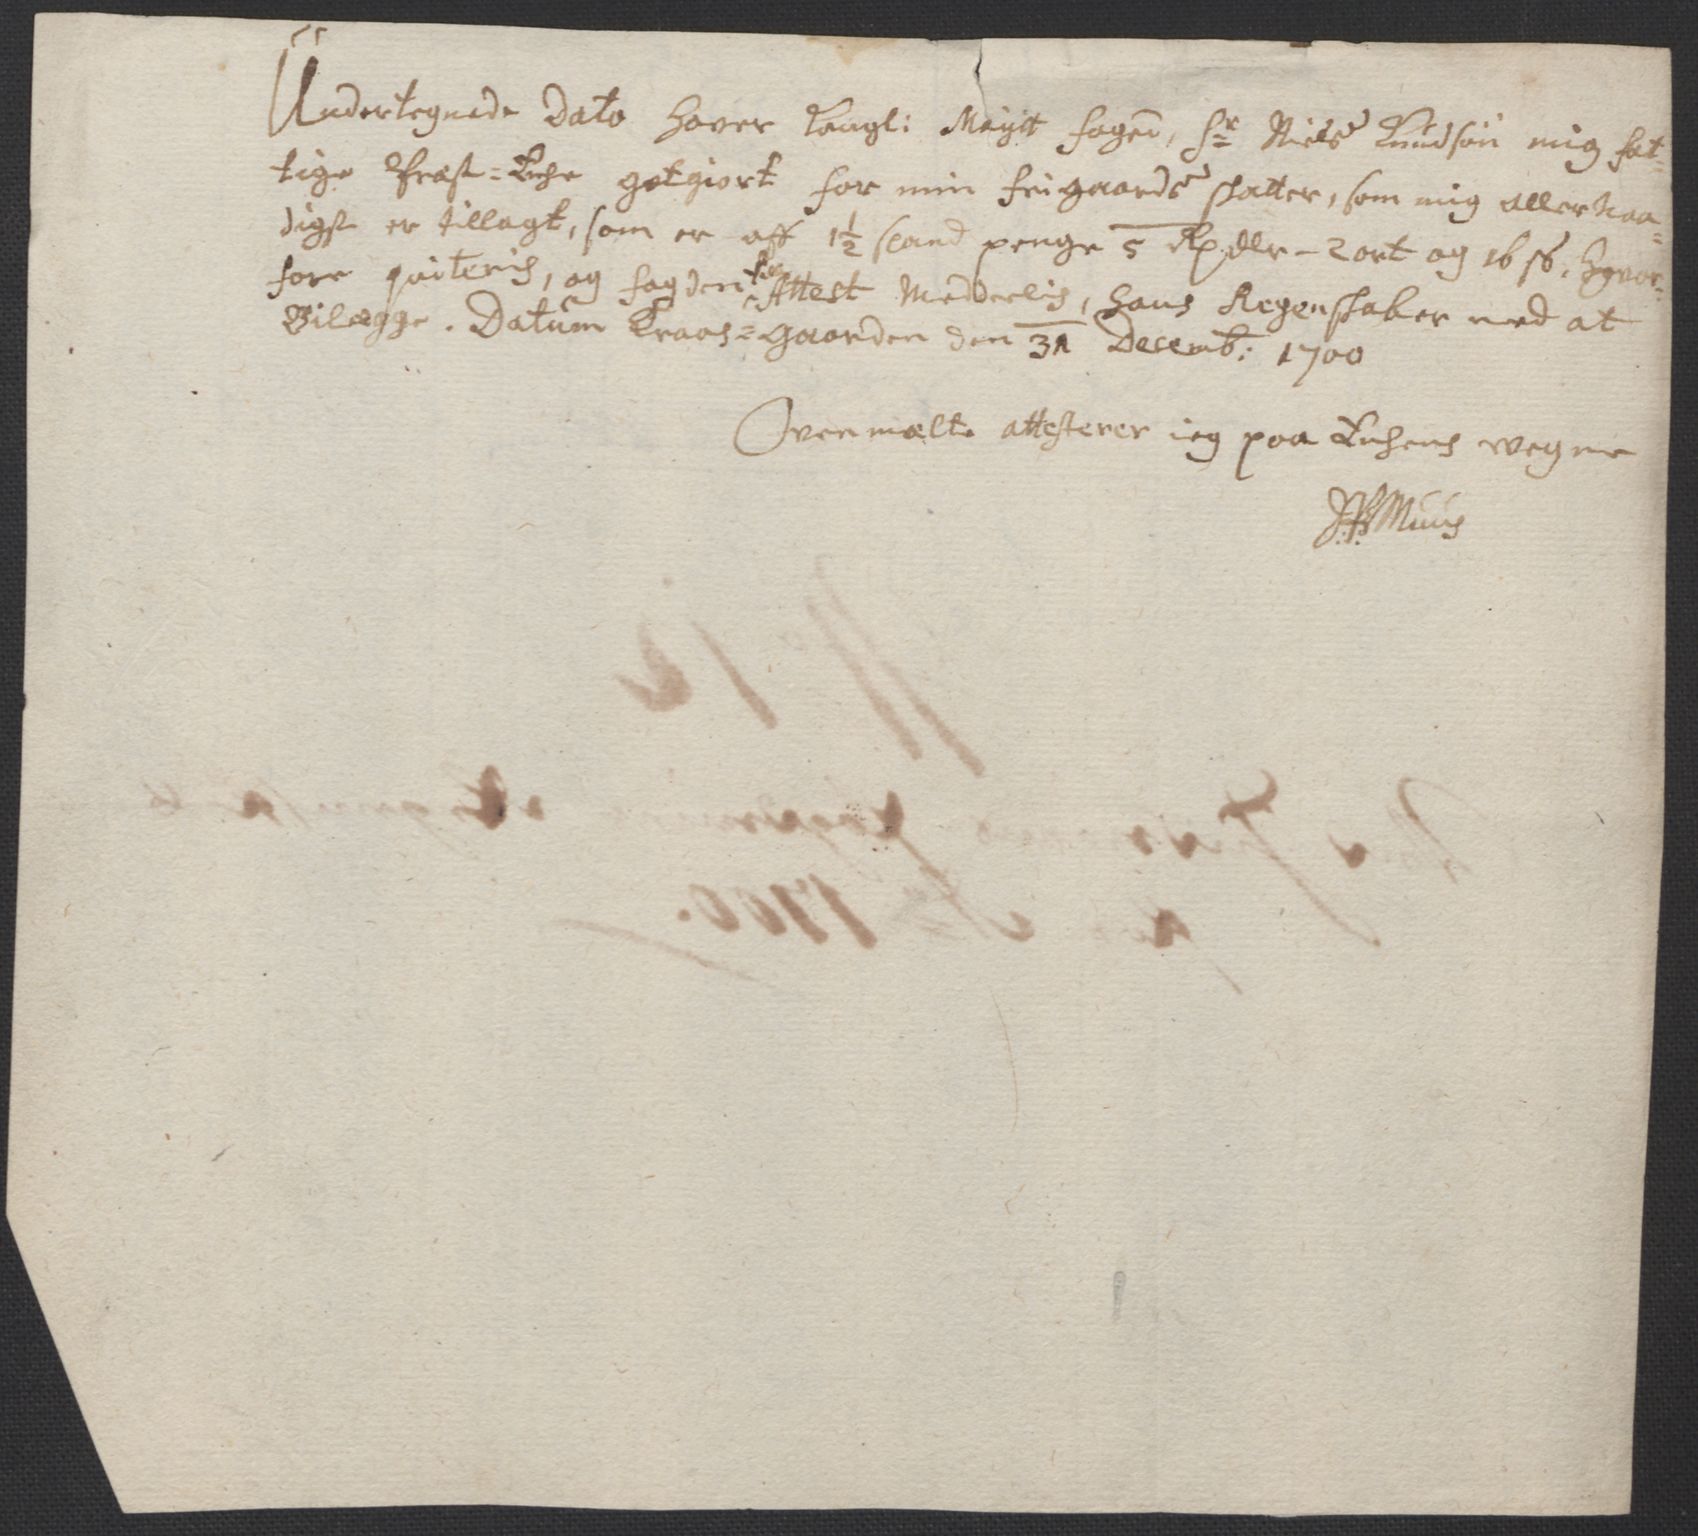 Undertegnede Dato haver Kongl: Mayst faaged, Sr Niels Knudsøn mig fat-
tige Præst-Enche gotgiort for min frigaards schatter, som mig allernaa=
digst er tillagt, som er aff 1½ spand penge 5 Rp dlr - 2 ort og 16 ss, hvor-
fore qviteris, og fogden till Attest Meddelis, hans Regenskaber med at
Bilegge. Datum Kraas=gaarden den 31 Decemb: 1700
Ovenmælte attesterer ieg paa Enchens wegne
Muus
1700.